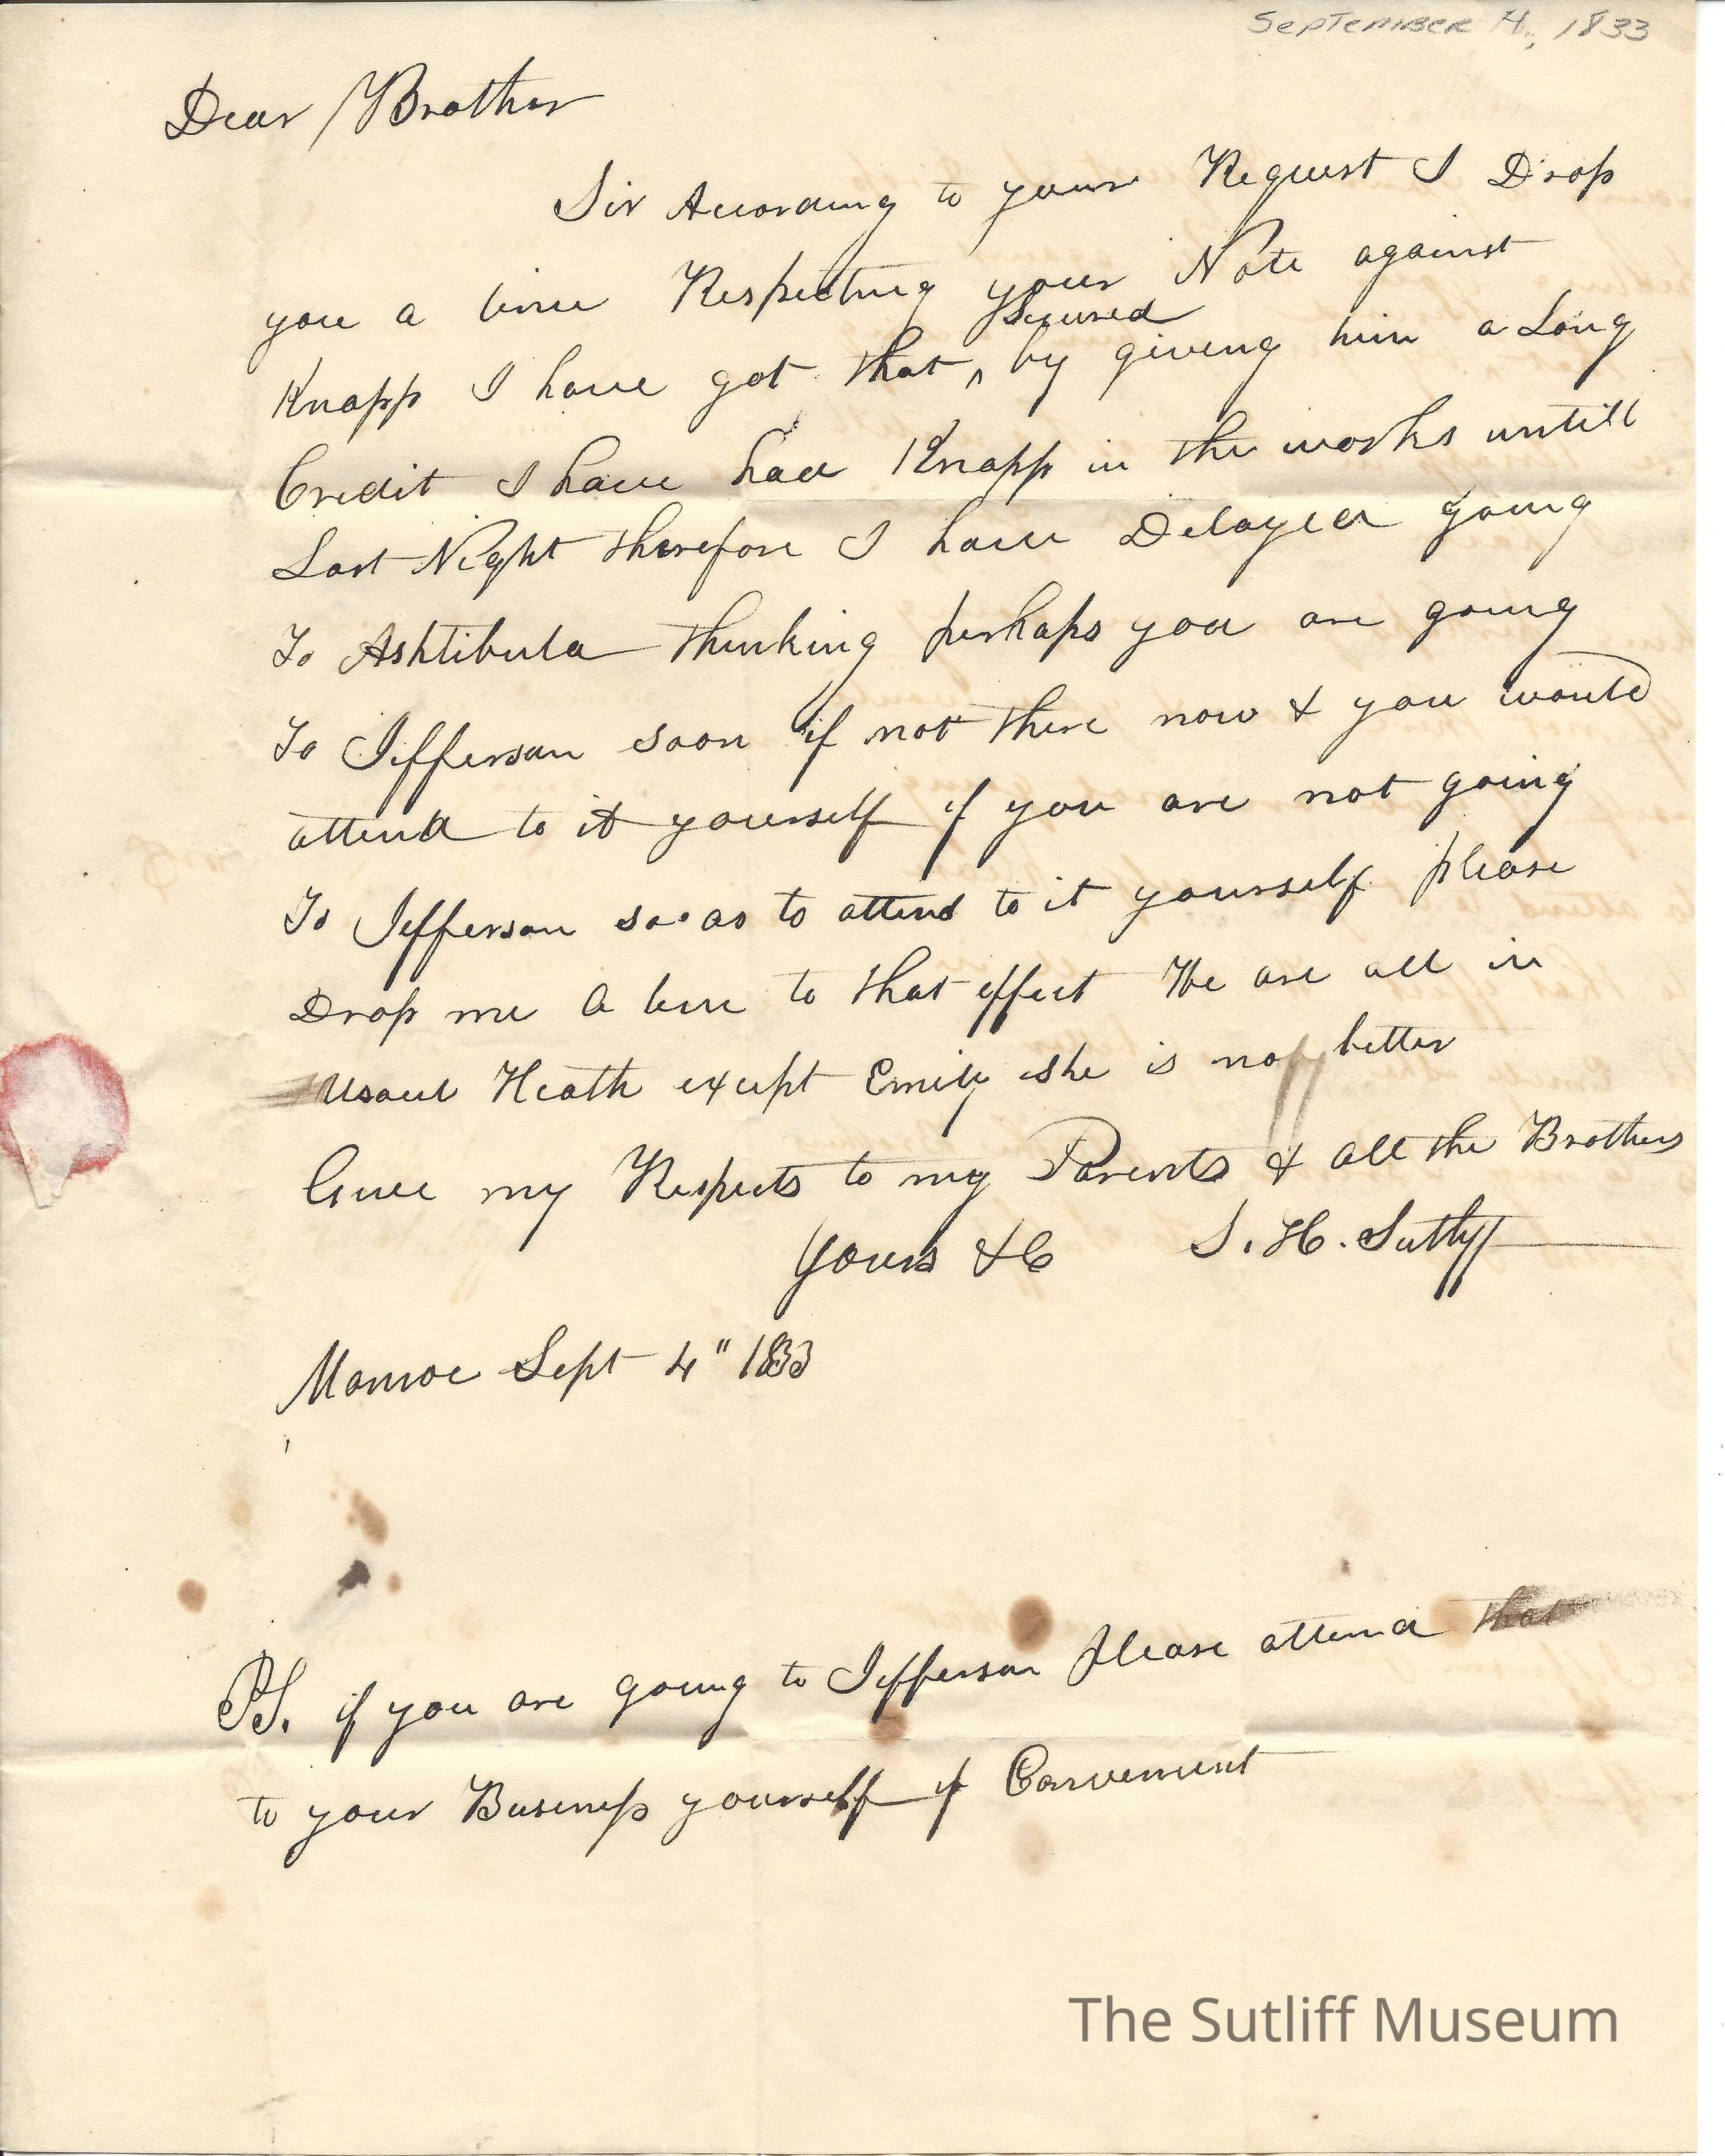 September 4, 1833
Dear Brother
Sir According to your Request I Drop
you a line Respecting your Note against
Knapp I have got that ^ Secured by giving him a Long
Credit I have had Knapp in the works untill
Last Night therefore I have Delayed going
To Ashtibula thinking perhaps you are going
To Jefferson soon if not there now & you would
attend to it yourself if you are not going
To Jefferson so as to attend to it yourself please
Drop me a line to that effect We are all in
Usaul Heath except Emily she is no better
Give my Respects to my Parents & all the Brothers
Yours &C S. H. Sutliff
Monroe Sept 4" 1833
PS. if you are going to Jefferson please attend that
to your Business yourself if Convenient
The Sutliff Museum